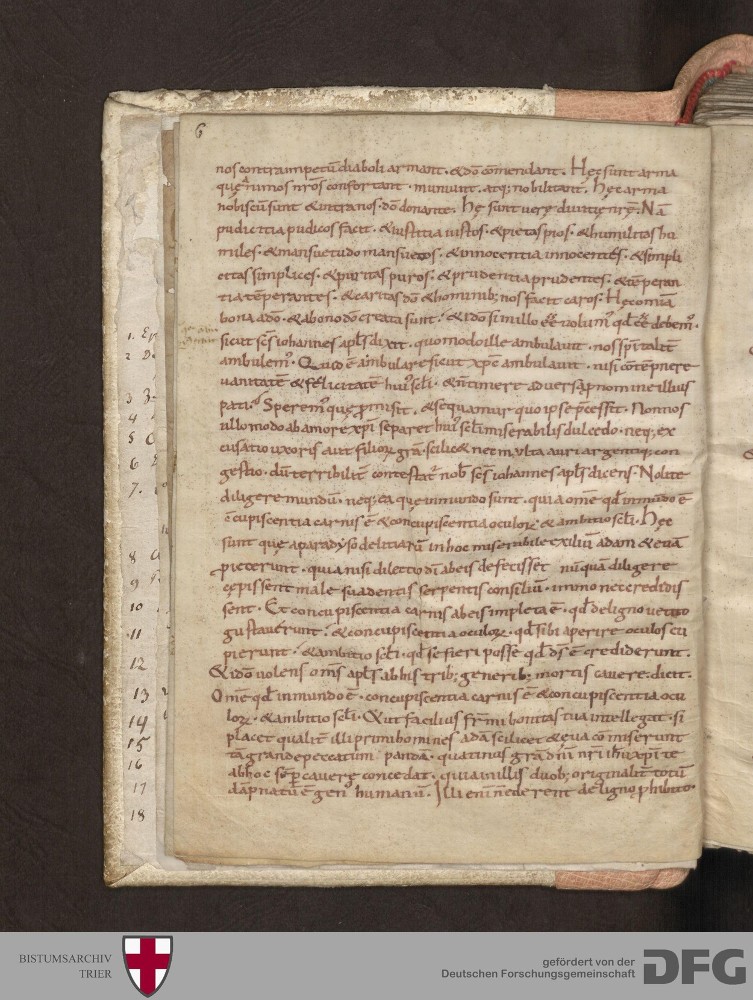 6
nos contra impetū diaboli armant · & dō cōmendant. Hęc sunt arma
quę animos nr̄os confortant · muniunt · atq; nobilitant. hęc arma
nobiscū sunt & intra nos · dō donante. hę sunt verę diuitię nr̄ę. Nā
pudicitia pudicos facit · & iustitia iustos · & pietas pios · & humilitas hu
miles · & mansuetudo mansuetos · & innocentia innocentes · & simpli
citas simplices · & puritas puros · & prudentia prudentes · & tēperan
tia tēperantes · & caritas dō & hominib; nos facit caros. Hęc omīa
bona a dō · & a bono dō creata sunt · & idō si in illo
sicut sc̄s iohannes apl̄s dixit · quomodo ille ambulauit · nos
ambulem' · Quid ē ambulare sicut xp̄c ambulauit · nisi cōtēpnere
uanitatē & felicitatē hui' scl̄i · & n̄ timere aduersa pro nomine illius
pati · Sperem' quę promisit · & sequamur quo ipse pręcessit · Non nos
ullo modo ab amore xp̄i separet hui' scl̄i miserabilis dulcedo · neq; ex
cusatio uxoris aut filioꝝ grā · scilic& nec multa auri argentiq; con
gestio · dū terribilit̄ contestat' nob̄ sc̄s iohannes apl̄s dicens · Nolite
diligere mundū · neq; ea quę in mundo sunt · quia om̄e qd̄ in mūdo ē
cupiscentia carnis ē & concupiscentia oculoꝝ & ambitio scl̄i · Hęc
sunt quę a paradyso delitiarū in hoc miserabile exiliū adam & euā
proiecerunt · quia nisi dilectio dī ab eis defecisset nūquā diligere
cępissent male suadentis serpentis consiliū · immo nec credidis
sent · Et concupiscentia carnis ab eis impleta ē · qd̄ de ligno uetito
gustauerunt · & concupiscentia oculoꝝ · qd̄ sibi aperire oculos cu
pierunt · & ambitio scl̄i · qd̄ se fieri posse qd̄ ds̄ ē crediderunt ·
& idō uolens om̄s apl̄s ab his trib; generib; mortis cauere · dicit ·
Om̄e qd̄ in mundo ē · concupiscentia carnis ē & concupiscentia ocu
loꝝ · & ambitio scl̄i · & ut facilius fr̄ mi bonitas tua intellegat · si
placet qualit̄ illi primi homines adā scilicet & eua cōmiserunt
tā grande peccatum pandā · quatinus grā dn̄i nr̄i ih̄u xp̄i te
ab hoc sēp cauere concedat · quia in illis duob; originalit̄ totū
dāpnatū ē gen' humanū. Illi eni n̄ ederent de ligno prohibito ·
1.
2
3
4
5
6
7.
8
9
10
11
12
13
14
15
16
17
18
BISTUMSARCHIV
TRIER
gefördert von der
Deutschen Forschungsgemeinschaft
DFG